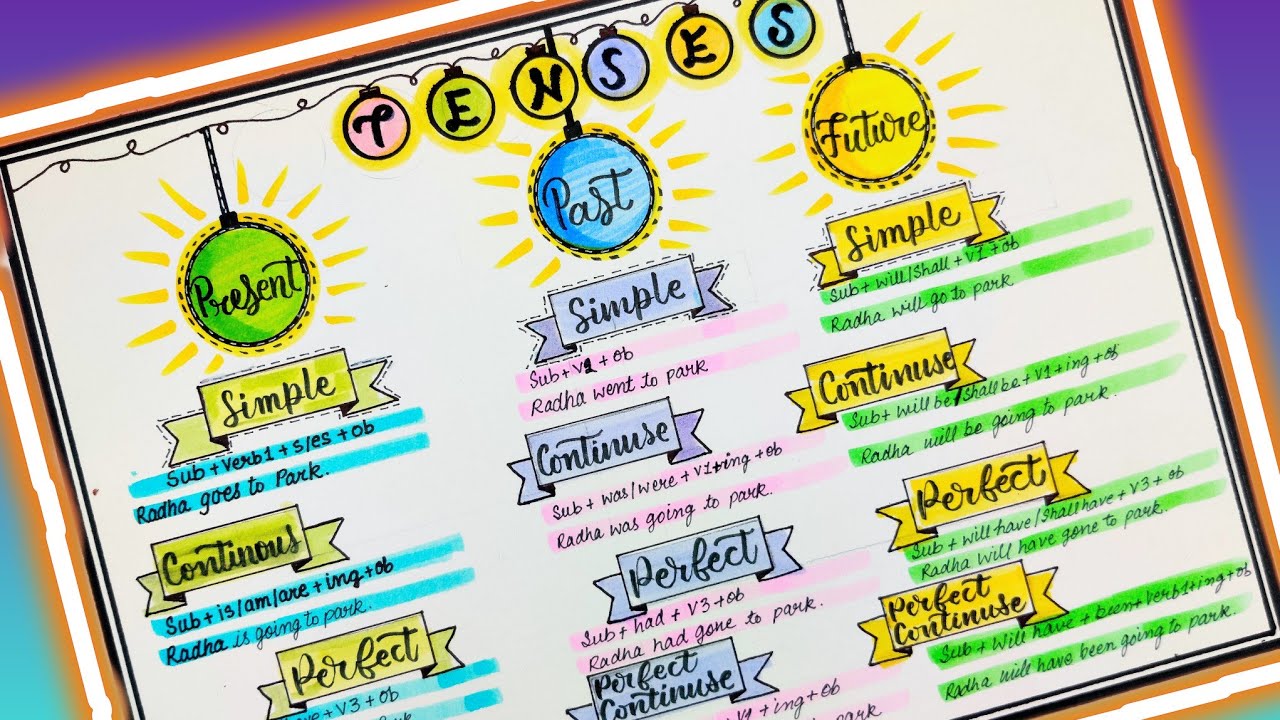 TENSES
Present
Simple
Sub + Verb1 + s/es + ob
Radha goes to Park.
Continous
Sub + is/am/are + ing + ob
Radha is going to park.
Perfect
ave + V3 + ob
Past
Simple
Sub + V2 + ob
Radha went to park
Continuse
Sub + was/were + V1+ing + ob
Radha was going to park.
Perfect
Sub + had + V3 + ob
Radha had gone to park.
Perfect
Continuse
V1 + ing + ob
Future
Simple
Sub + will/Shall + V1 + ob
Radha will go to park
Continuse
Sub + will be/Shall be + V1 + ing + ob
Radha will be going to park.
Perfect
Sub + will have/Shall have + V3 + ob
Radha Will have gone to park.
Perfect
Continuse
Sub + Will have + been + Verb1+ing+ob
Radha will have been going to park.